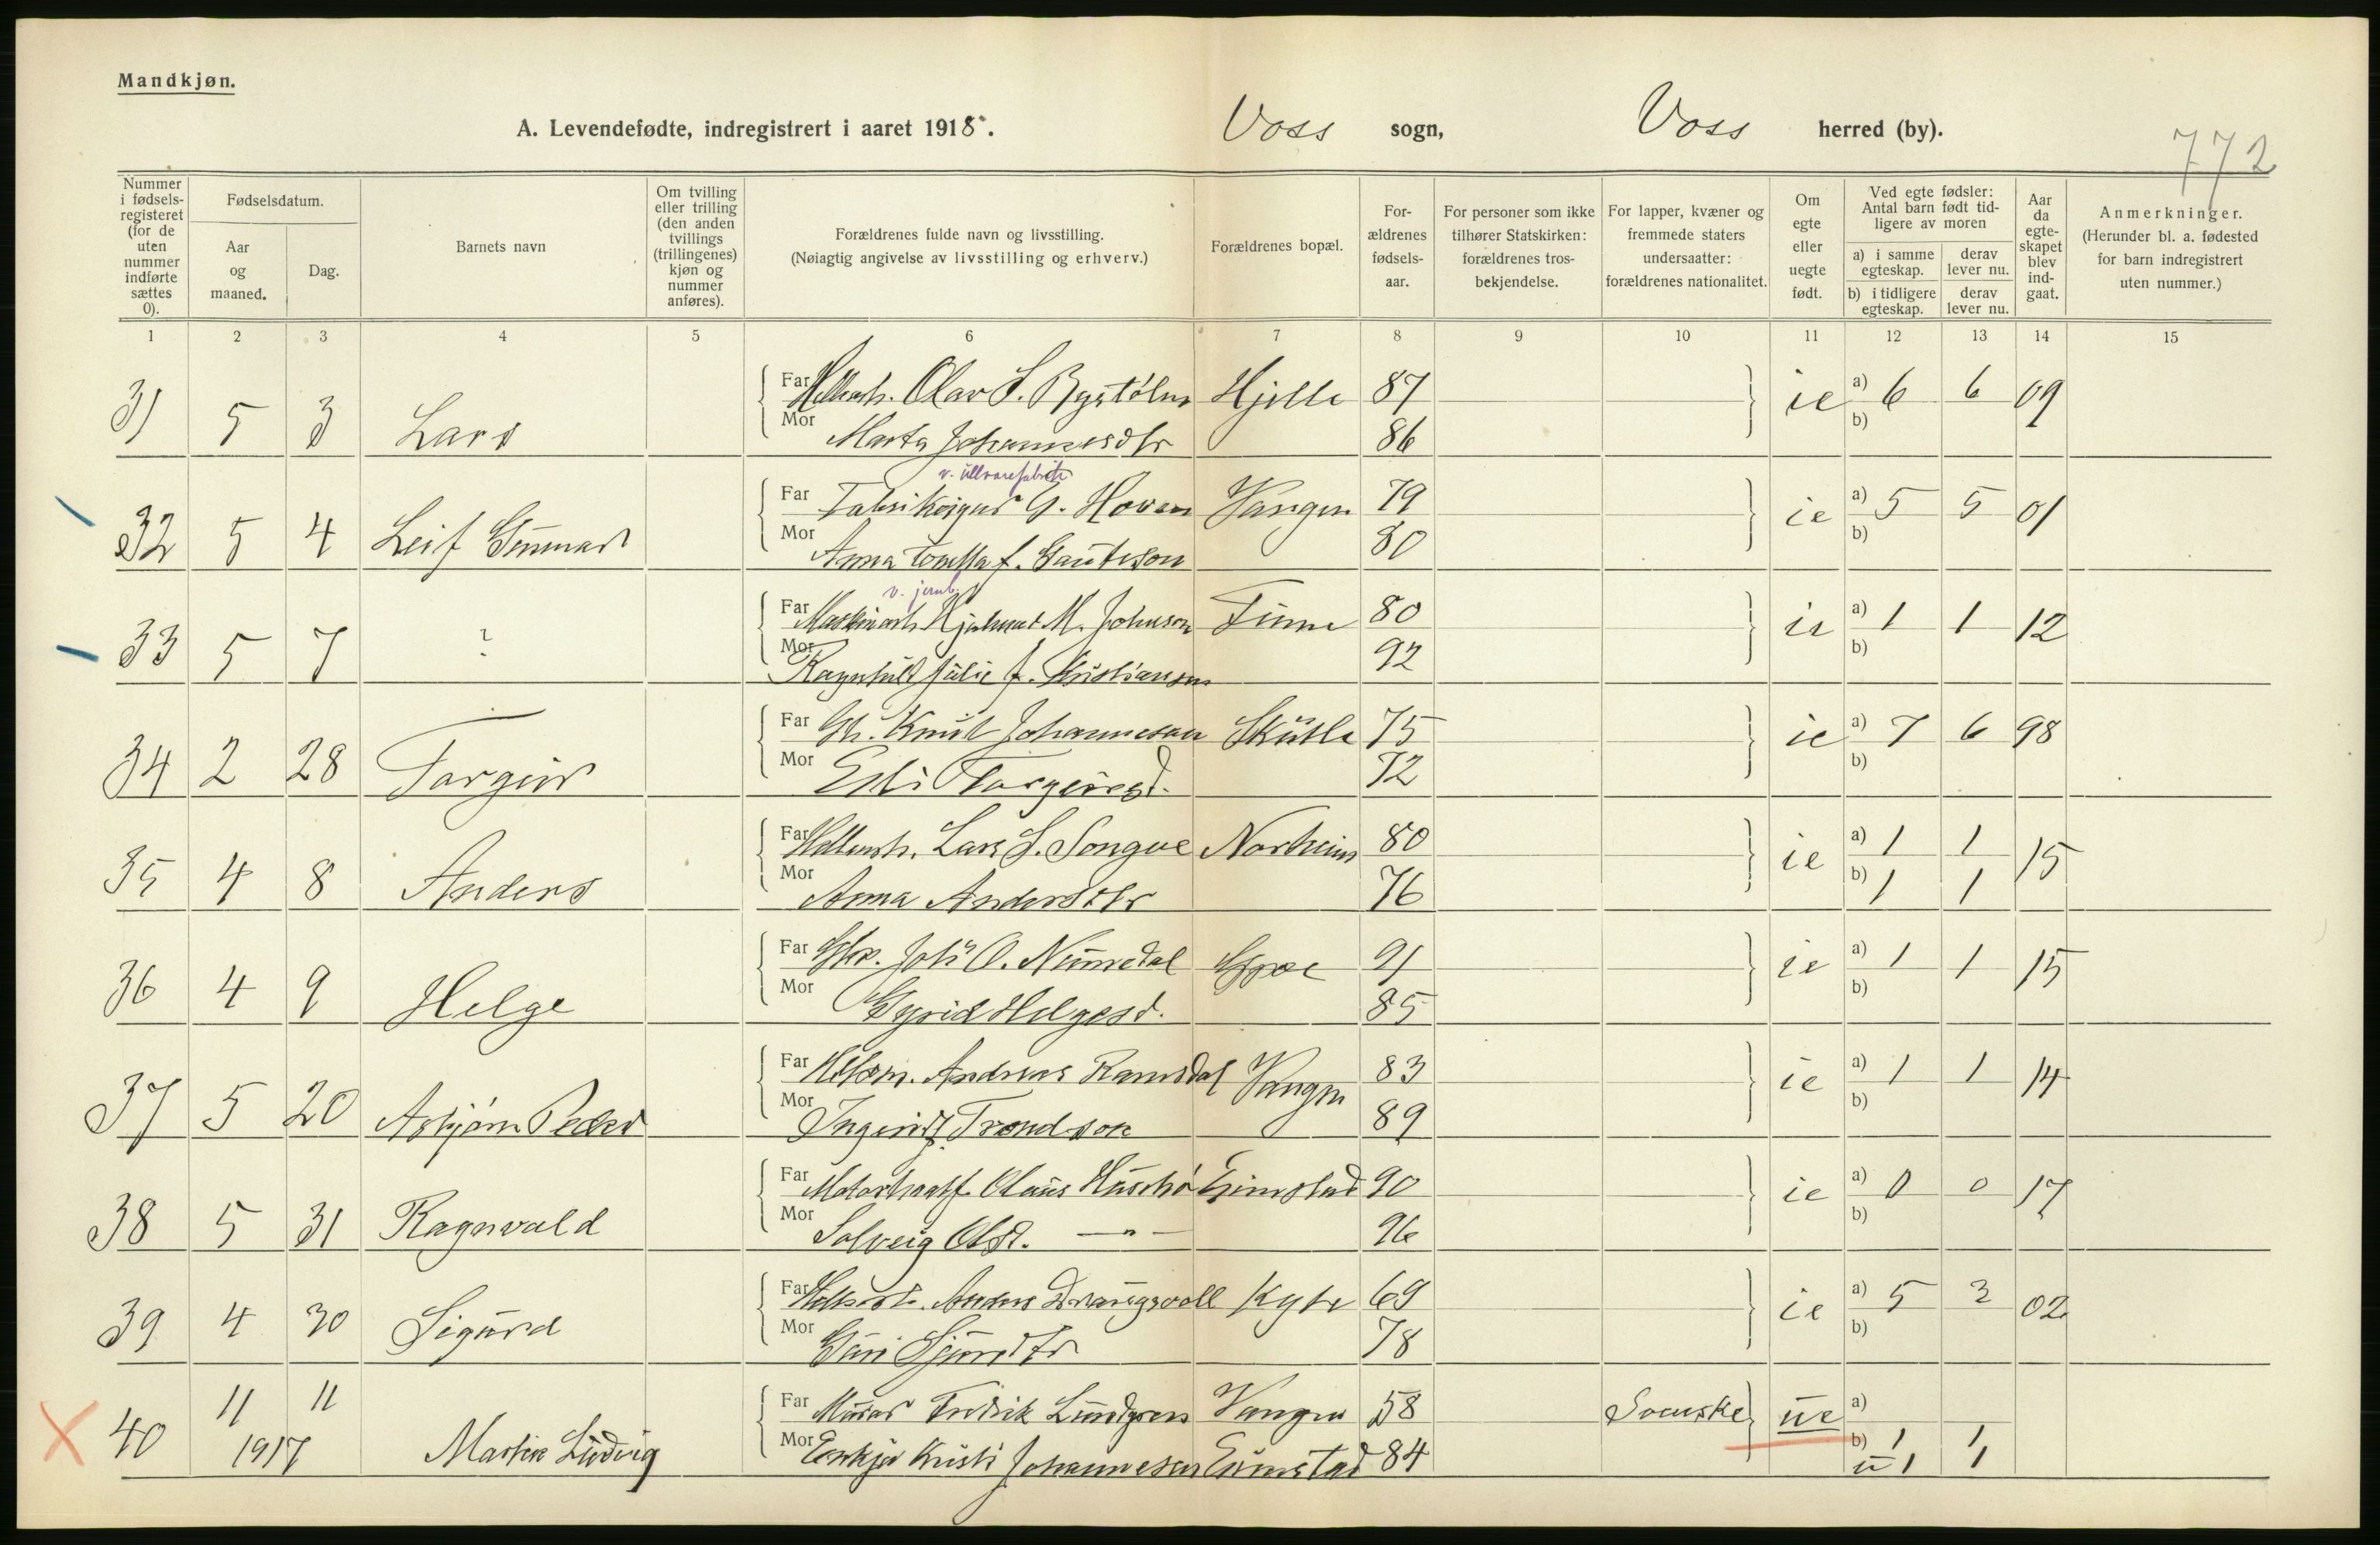 Mandkjøn.
A. Levendefødte, indregistrert i aaret 1918. Voss sogn, Voss herred (by).
772
Nummer i fødselsregisteret (for de uten nummer indførte sættes 0).
Fødselsdatum.
Aar og maaned.
Dag.
Barnets navn
Om tvilling eller trilling (den anden tvillings (trillingenes) kjøn og nummer anføres).
Forældrenes fulde navn og livsstilling.
(Nøiagtig angivelse av livsstilling og erhverv.)
Forældrenes bopæl.
Forældrenes fødselsaar.
For personer som ikke tilhører Statskirken: forældrenes trosbekjendelse.
For lapper, kvæner og fremmede staters undersaatter: forældrenes nationalitet.
Om egte eller uegte født.
Ved egte fødsler: Antal barn født tidligere av moren
a) i samme egteskap.
derav lever nu.
b) i tidligere egteskap.
derav lever nu.
Aar da egteskapet blev indgaat.
Anmerkninger.
(Herunder bl. a. fødested for barn indregistrert uten nummer.)
1 2 3 4 5 6 7 8 9 10 11 12 13 14 15
Far Olav L. Bystølen Hjelle 87 ie a) 6 6 09
31 5 3 Lars Mor Marta Johannesdtr 86 b)
v. ullvarefabrik
Far G. Hoven Vangen 79 ie a) 5 5 01
32 5 4 Leif Gunnar Mor Anna f. Gauteson 80 b)
v. jernb.
Far Hjalmar M. Johnson Finne 80 ie a) 1 1 12
33 5 7 ? Mor Ragnhild Julie f. Kristiansen 92 b)
Far Gb. Knut Johanneson Skutle 75 ie a) 7 6 98
34 2 28 Torgeir Mor Eli Torgeirsd. 72 b)
Far Lars L. Songve Norheim 80 ie a) 1 1 15
35 4 8 Anders Mor Anna Andersdtr 76 b) 1 1
Far Joh. O. Nummedal 91 ie a) 1 1 15
36 4 9 Helge Mor Gyrid Helgesd. 85 b)
Far Andreas Ramsdal Vangen 83 ie a) 1 1 14
37 5 20 Asbjørn Peder Mor Ingerid f. Trondson 89 b)
Far Olaus Gimstad 90 ie a) 0 0 17
38 5 31 Ragnvald Mor Solveig Olsd. — " — 96 b)
Far Anders Drangsvoll Kyte 69 ie a) 5 3 02
39 4 30 Sigurd Mor Guri Sjurdtr 78 b)
11 11 Far Murer Fredrik Lundgren Vangen 58 Svenske ue a)
40 1917 Martin Ludvig Mor Enkja Kristi Johannesen Gimstad 84 b) 1 1
u 1 1